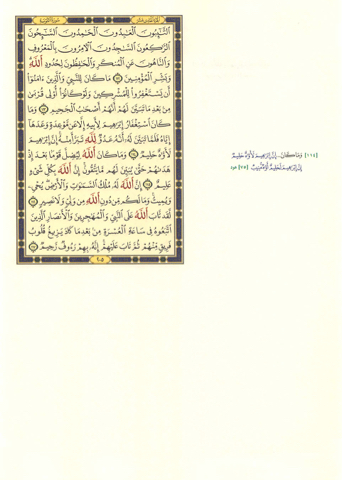 الجزء الحادي عشر
سورة التوبة
ٱلتَّٰٓئِبُونَ ٱلْعَٰبِدُونَ ٱلْحَٰمِدُونَ ٱلسَّٰٓئِحُونَ
ٱلرَّٰكِعُونَ ٱلسَّٰجِدُونَ ٱلْءَامِرُونَ بِٱلْمَعْرُوفِ
وَٱلنَّاهُونَ عَنِ ٱلْمُنكَرِ وَٱلْحَٰفِظُونَ لِحُدُودِ ٱللَّهِ
وَبَشِّرِ ٱلْمُؤْمِنِينَ ١١٢ مَا كَانَ لِلنَّبِيِّ وَٱلَّذِينَ ءَامَنُوٓا۟
أَن يَسْتَغْفِرُوا۟ لِلْمُشْرِكِينَ وَلَوْ كَانُوٓا۟ أُو۟لِى قُرْبَىٰ مِنۢ
بَعْدِ مَا تَبَيَّنَ لَهُمْ أَنَّهُمْ أَصْحَٰبُ ٱلْجَحِيمِ ١١٣ وَمَا
كَانَ ٱسْتِغْفَارُ إِبْرَٰهِيمَ لِأَبِيهِ إِلَّا عَن مَّوْعِدَةٍ وَعَدَهَآ
إِيَّاهُ فَلَمَّا تَبَيَّنَ لَهُۥٓ أَنَّهُۥ عَدُوٌّ لِّلَّهِ تَبَرَّأَ مِنْهُ إِنَّ إِبْرَٰهِيمَ
لَأَوَّٰهٌ حَلِيمٌ ١١٤ وَمَا كَانَ ٱللَّهُ لِيُضِلَّ قَوْمًۢا بَعْدَ إِذْ
هَدَىٰهُمْ حَتَّىٰ يُبَيِّنَ لَهُم مَّا يَتَّقُونَ إِنَّ ٱللَّهَ بِكُلِّ شَىْءٍ
عَلِيمٌ ١١٥ إِنَّ ٱللَّهَ لَهُۥ مُلْكُ ٱلسَّمَٰوَٰتِ وَٱلْأَرْضِ يُحْىِۦ
وَيُمِيتُ وَمَا لَكُم مِّن دُونِ ٱللَّهِ مِن وَلِىٍّ وَلَا نَصِيرٍ ١١٦
لَّقَد تَّابَ ٱللَّهُ عَلَى ٱلنَّبِىِّ وَٱلْمُهَٰجِرِينَ وَٱلْأَنصَارِ ٱلَّذِينَ
ٱتَّبَعُوهُ فِى سَاعَةِ ٱلْعُسْرَةِ مِنۢ بَعْدِ مَا كَادَ يَزِيغُ قُلُوبُ
فَرِيقٍ مِّنْهُمْ ثُمَّ تَابَ عَلَيْهِمْ إِنَّهُۥ بِهِمْ رَءُوفٌ رَّحِيمٌ ١١٧
٢٠٥
[١١٤] وَمَا كَانَ .. إِنَّ إِبْرَٰهِيمَ لَأَوَّٰهٌ حَلِيمٌ
إِنَّ إِبْرَٰهِيمَ لَحَلِيمٌ أَوَّٰهٌ مُّنِيبٌ [٧٥] هود